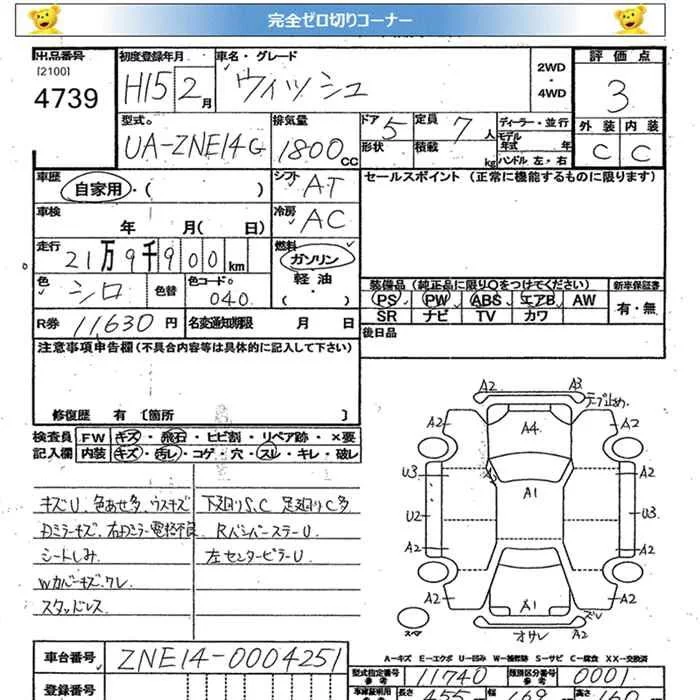 完全ゼロ切りコーナー
出品番号 初度登録年月 車名・グレード 評価点
[2100] 2WD
4739 H15 2月 ウィッシュ ・4WD 3
型式 排気量 ドア 5 定員 7人 ディーラー・並行 外装 内装
モデル年式 年
UA-ZNE14G 1800cc 形状 積載 kg ハンドル 左・右 C C
車歴 シフト セールスポイント (正常に機能するものに限ります)
自家用・( ) AT
車検 冷房
年 月( 日) AC
走行 燃料
21万9千900km ガソリン
色 色替 色コード 軽油 装備品 (純正品に限り○をつけてください) 新車保証書
シロ 040 ・( ) PS PW ABS エアB AW 有・無
SR ナビ TV カワ
R券 11,630円 名変通知期限 月 日 後日品
注意事項申告欄(不具合内容等は具体的に記入して下さい)
修復歴 有 〔箇所 〕
検査員 FW キズ・飛石・ヒビ割・リペア跡・×要
記入欄 内装 キズ・汚レ・コゲ・穴・スレ・キレ・破レ
キズU、色あせ多、ウスキズ 下廻りS、C 足廻りC多
RバンパーステーU
シートしみ 左センターピラーU
Wカバーキズ、ワレ
スタッドレス
A2 A3 テープ止め
A2 A4 A2
U3 A2
A1
U2 U3
A2 A2
A2 A1 A2
ズレ
スペア オサレ A2
車台番号 ZNE14-0004251
A-キズ E-エクボ U-凹み W-補修跡 S-サビ C-腐食 XX-交換済
登録番号 型式指定番号 11740 類別区分番号 0001
長さ 455 幅 169 高さ 160